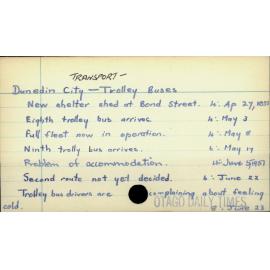 TRANSPORT -
Dunedin City - Trolley Buses
New shelter shed at Bond Street. 4: Ap 27, 
Eighth trolley bus arrives. 4: May 3
Full fleet now in operation. 4: May 8
Ninth trolly bus arrives. 4: May 17
Problem of accommodation. June 5, 1951
Second route not yet decided. 4: June 22
Trolley bus drivers are complaining about feeling
cold. June 23
OTAGO DAILY TIMES